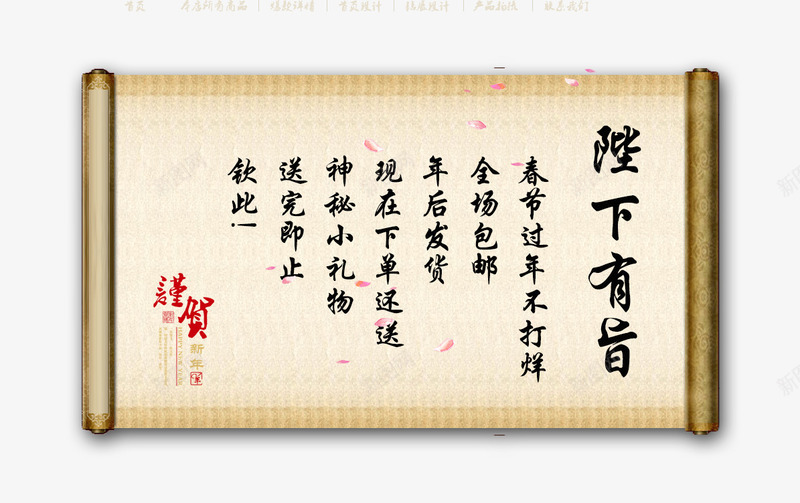 首页 本店所有商品 爆款详情 首页设计 拓展设计 产品拍摄 联系我们
陛下有旨
春节过年不打烊
全场包邮
年后发货
现在下单还送
神秘小礼物
送完即止
钦此！
謹賀
新年
HAPPY NEW YEAR